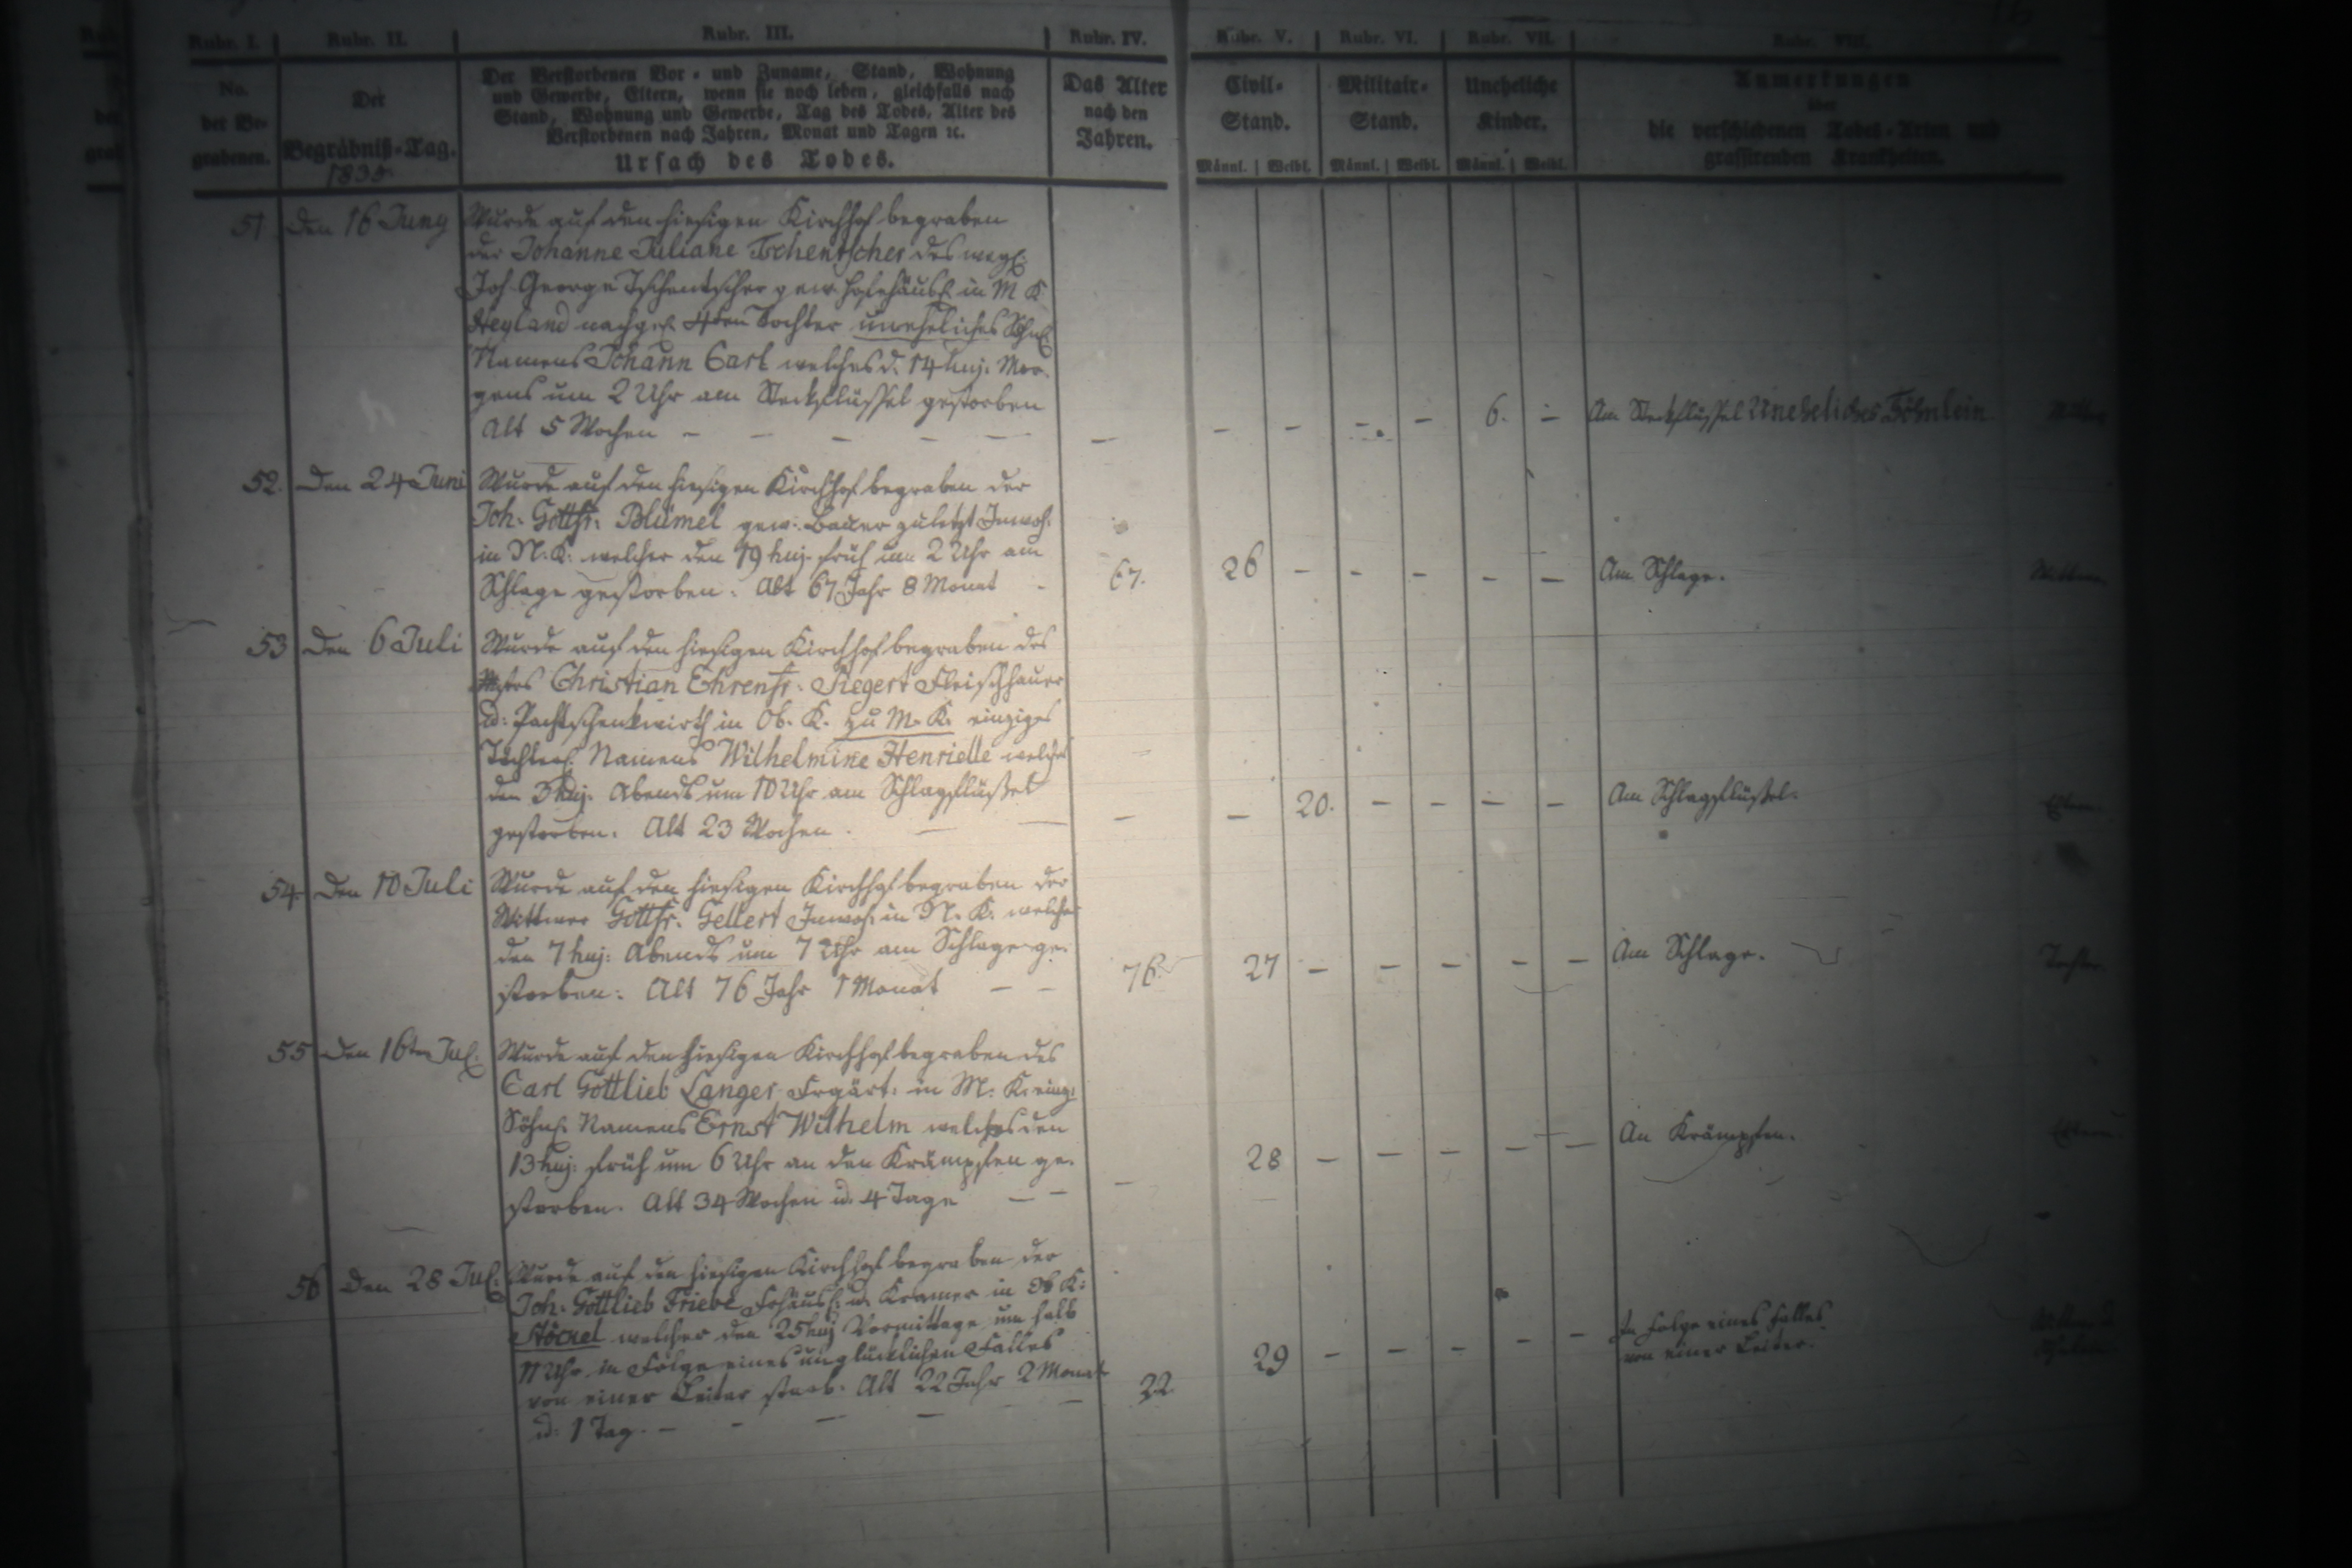 Rubr. I. Rubr. II. Rubr. III. Rubr. IV. Rubr. V. Rubr. VI. Rubr. VII. Rubr. VIII.
No. der Begrabenen.
Der Begräbniß-Tag.
1833
Der Verstorbenen Vor- und Zuname, Stand, Wohnung
und Gewerbe, Eltern, wenn sie noch leben, gleichfalls nach
Stand, Wohnung und Gewerbe, Tag des Todes, Alter des
Verstorbenen nach Jahren, Monat und Tagen ꝛc.
Ursach des Todes.
Das Alter
nach den
Jahren.
Civil-
Stand.
Männl. | Weibl.
Militair-
Stand.
Männl. | Weibl.
Uneheliche
Kinder.
Männl. | Weibl.
Anmerkungen
über
die verschiedenen Todes-Arten und
grassirenden Krankheiten.
51 Den 16 Juny Wurde auf den hiesigen Kirchhof begraben
der Johanne Juliane Tschentscher des weyl.
Joh George Tschentscher gew. Hofehäusl. in M K
Heyland nachgel. 4ten Tochter uneheliches Söhnl.
Namens Johann Carl welches d. 14 huj. Mor-
gens um 2 Uhr am Steckflüssel gestorben
Alt 5 Wochen – – – – – – – – – – 6. – Am Steckflüssel Uneheliches Söhnlein
52. Den 24 Juni Wurde auf den hiesigen Kirchhof begraben der
Joh. Gottfr. Blümel gew. Bauer zuletzt Inwoh.
in N. K. welcher den 19 huj. früh um 2 Uhr am
Schlage gestorben. Alt 67 Jahr 8 Monat – 67. 26 – – – – – Am Schlage.
53 Den 6 Juli Wurde auf den hiesigen Kirchhof begraben des
Mstrs Christian Ehrenfr. Siegert Fleischhauer
u. Pachtschenkwirth in Ob. K. zu M. K. einziges
Töchterl. Namens Wilhelmine Henriette welches
den 3 huj. Abends um 10 Uhr am Schlagflüssel
gestorben. Alt 23 Wochen. – – – – 20. – – – – Am Schlagflüssel.
54 Den 10 Juli Wurde auf den hiesigen Kirchhof begraben der
Wittwer Gottfr. Gellert Inwoh. in N. K. welcher
den 7 huj: Abends um 7 Uhr am Schlage ge-
storben: Alt 76 Jahr 1 Monat – – 76. 27 – – – – – Am Schlage.
55 Den 16ten Jul. Wurde auf den hiesigen Kirchhof begraben des
Carl Gottlieb Langer Frgärt. in M. K. einz.
Söhnl. Namens Ernst Wilhelm welches den
13 huj: früh um 6 Uhr an den Krämpfen ge-
storben. Alt 34 Wochen u. 4 Tage – – – 28 – – – – – An Krämpfen.
56 Den 28 Jul. Wurde auf den hiesigen Kirchhof begraben der
Joh. Gottlieb Friebe Frhäusl. u. Kramer in Ob K.
welcher den 25 huj Vormittags um halb
11 Uhr in Folge eines unglücklichen Falles
von einer Leiter starb. Alt 22 Jahr 2 Monat
u. 1 Tag. – – – – – 22. 29 – – – – – In Folge eines Falles
von einer Leiter.